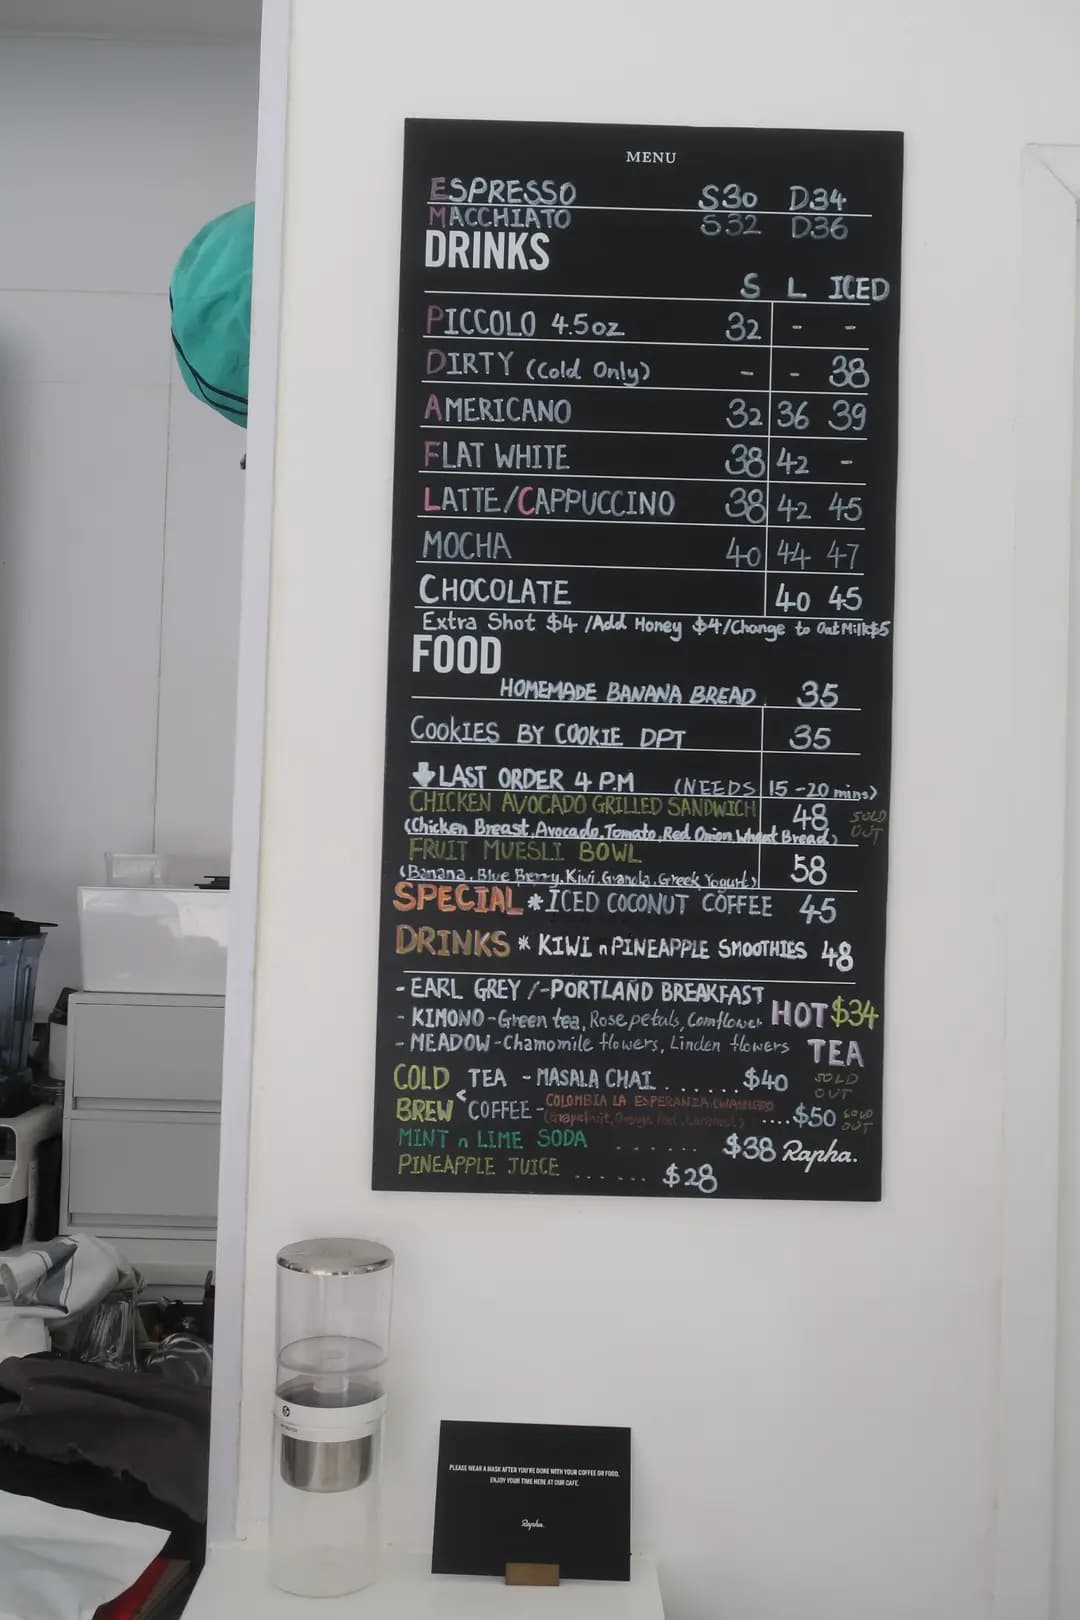 MENU
ESPRESSO S30 D34
MACCHIATO S32 D36
DRINKS
S L ICED
PICCOLO 4.5oz 32 - -
DIRTY (Cold Only) - - 38
AMERICANO 32 36 39
FLAT WHITE 38 42 -
LATTE/CAPPUCCINO 38 42 45
MOCHA 40 44 47
CHOCOLATE 40 45
Extra Shot $4 /Add Honey $4/Change to Oat Milk$5
FOOD
HOMEMADE BANANA BREAD 35
COOKIES BY COOKIE DPT 35
LAST ORDER 4 P.M (NEEDS 15-20 mins)
CHICKEN AVOCADO GRILLED SANDWICH 48 SOLD OUT
(Chicken Breast, Avocado, Tomato, Red Onion Wheat Bread)
FRUIT MUESLI BOWL 58
(Banana, Blue Berry, Kiwi, Granola, Greek Yogurt)
SPECIAL *ICED COCONUT COFFEE 45
DRINKS * KIWI n PINEAPPLE SMOOTHIES 48
- EARL GREY /-PORTLAND BREAKFAST
- KIMONO-Green tea, Rose petals, Cornflower HOT $34
- MEADOW-Chamomile flowers, Linden flowers TEA
COLD TEA - MASALA CHAI ....... $40 SOLD OUT
BREW < COFFEE - COLOMBIA LA ESPERANZA .... $50 SOLD OUT
(Grapefruit,
MINT n LIME SODA ...... $38 Rapha.
PINEAPPLE JUICE ...... $28
PLEASE WEAR A MASK AFTER YOU'RE DONE WITH YOUR COFFEE OR FOOD.
ENJOY YOUR TIME HERE AT OUR CAFE.
Rapha.